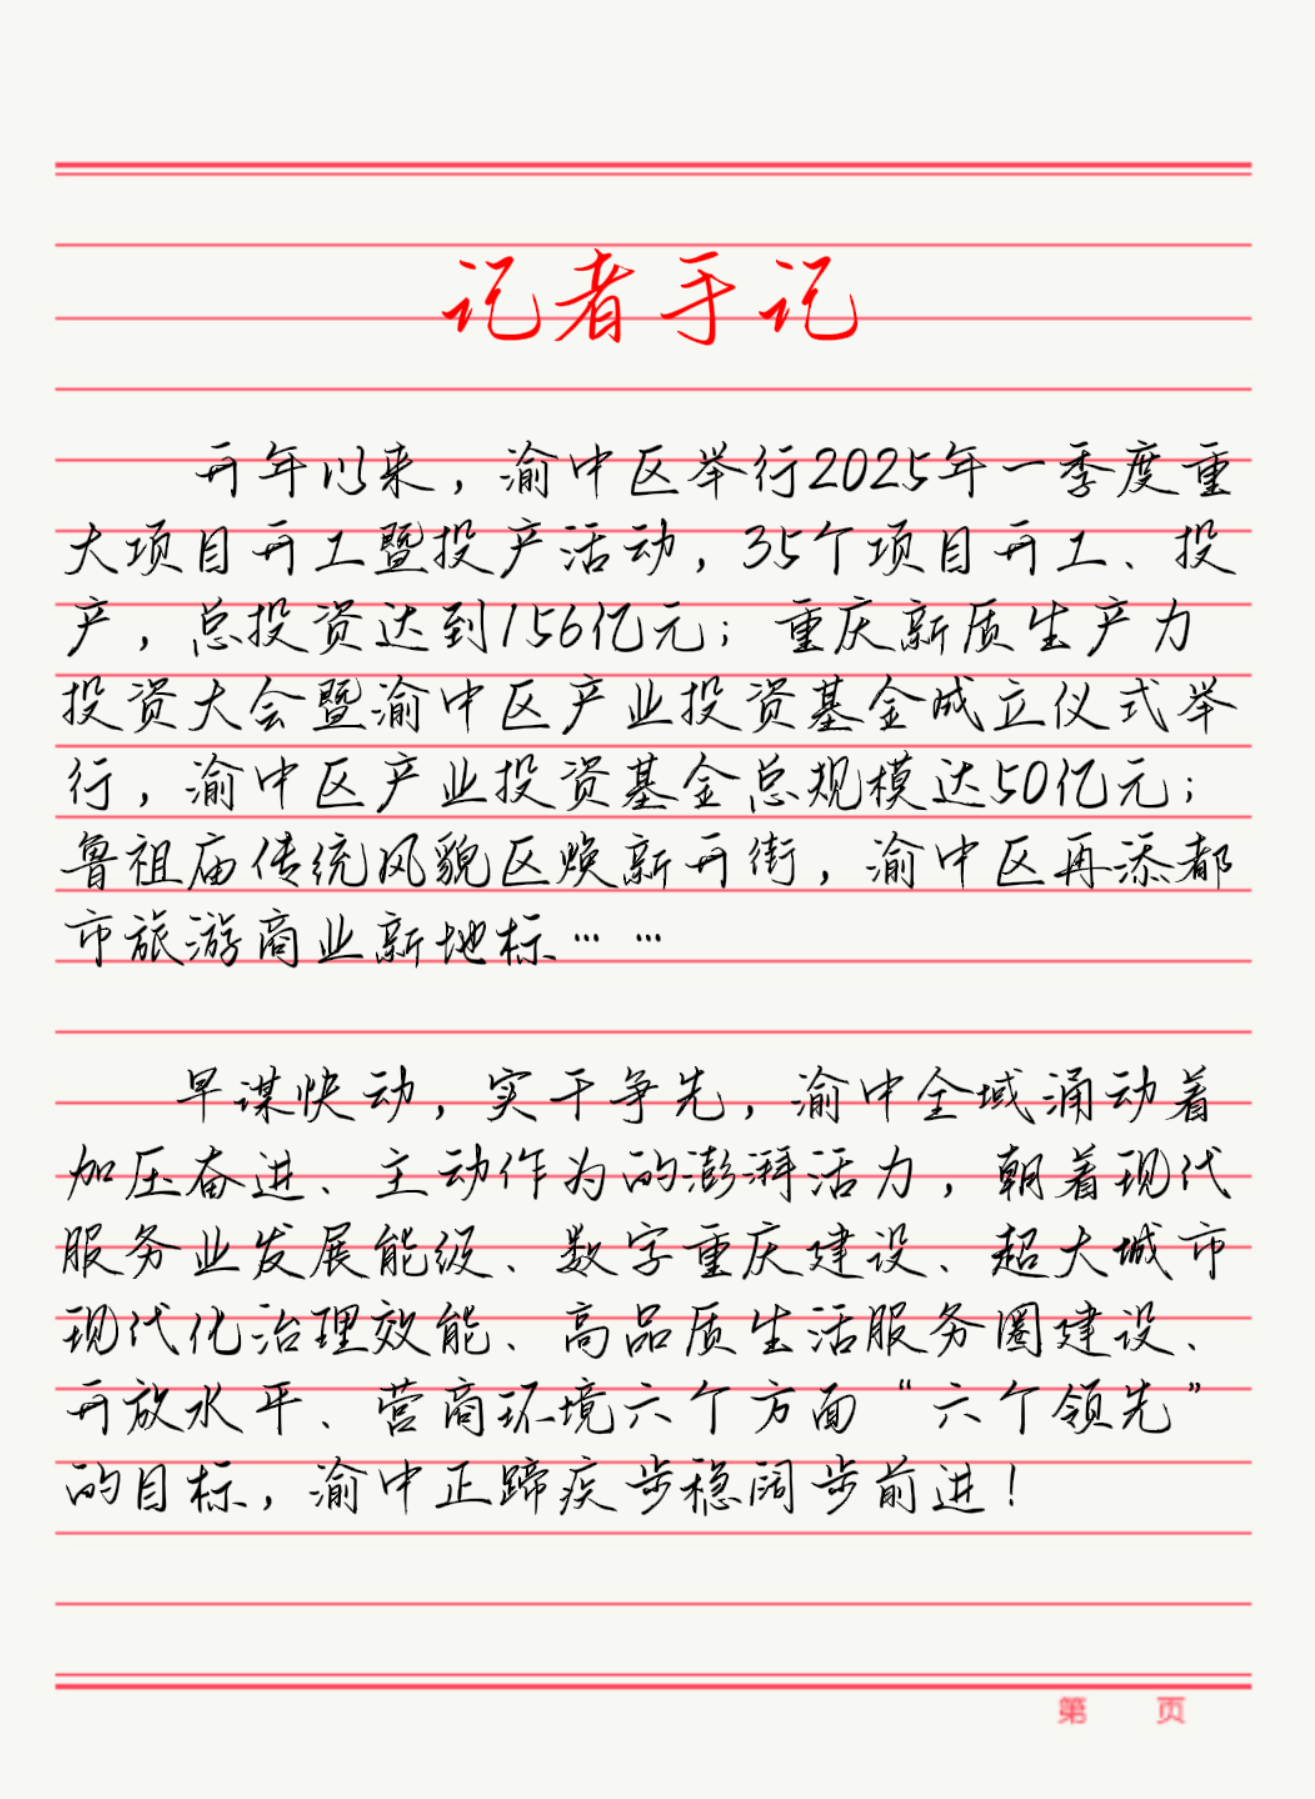 记者手记
开年以来，渝中区举行2025年一季度重
大项目开工暨投产活动，35个项目开工、投
产，总投资达到156亿元；重庆新质生产力
投资大会暨渝中区产业投资基金成立仪式举
行，渝中区产业投资基金总规模达50亿元；
鲁祖庙传统风貌区焕新开街，渝中区再添都
市旅游商业新地标……
早谋快动，实干争先，渝中全域涌动着
加压奋进、主动作为的澎湃活力，朝着现代
服务业发展能级、数字重庆建设、超大城市
现代化治理效能、高品质生活服务圈建设、
开放水平、营商环境六个方面“六个领先”
的目标，渝中正蹄疾步稳阔步前进！
第 页